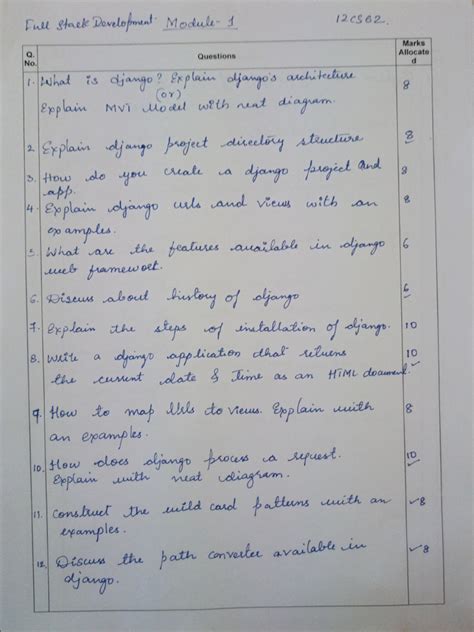 Full Stack Development Module-1
Q. No. Questions Marks Allocate d
1. What is django? Explain django's architecture 8
(or)
Explain MVT Model with neat diagram.
2. Explain django project directory structure 8
3. How do you create a django project and 8
app.
4. Explain django urls and views with an 8
examples.
5. What are the features available in django 6
web framework.
6. Discuss about history of django 6
7. Explain the steps of installation of django. 10
8. Write a django application that returns 10
the current date & Time as an HTML document.
9. How to map Urls to views. Explain with 8
an examples.
10. How does django process a request. 10
Explain with neat diagram.
11. Construct the wild card patterns with an 8
examples.
12. Discuss the path converter available in 8
django.